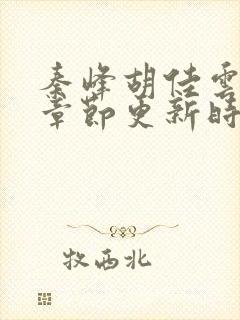 秦峰胡佳雲
章節更新時
牧西北